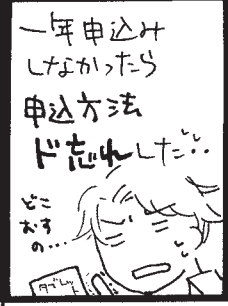 一年申込み
しなかったら
申込方法
ド忘れした…
どこ
おすの…